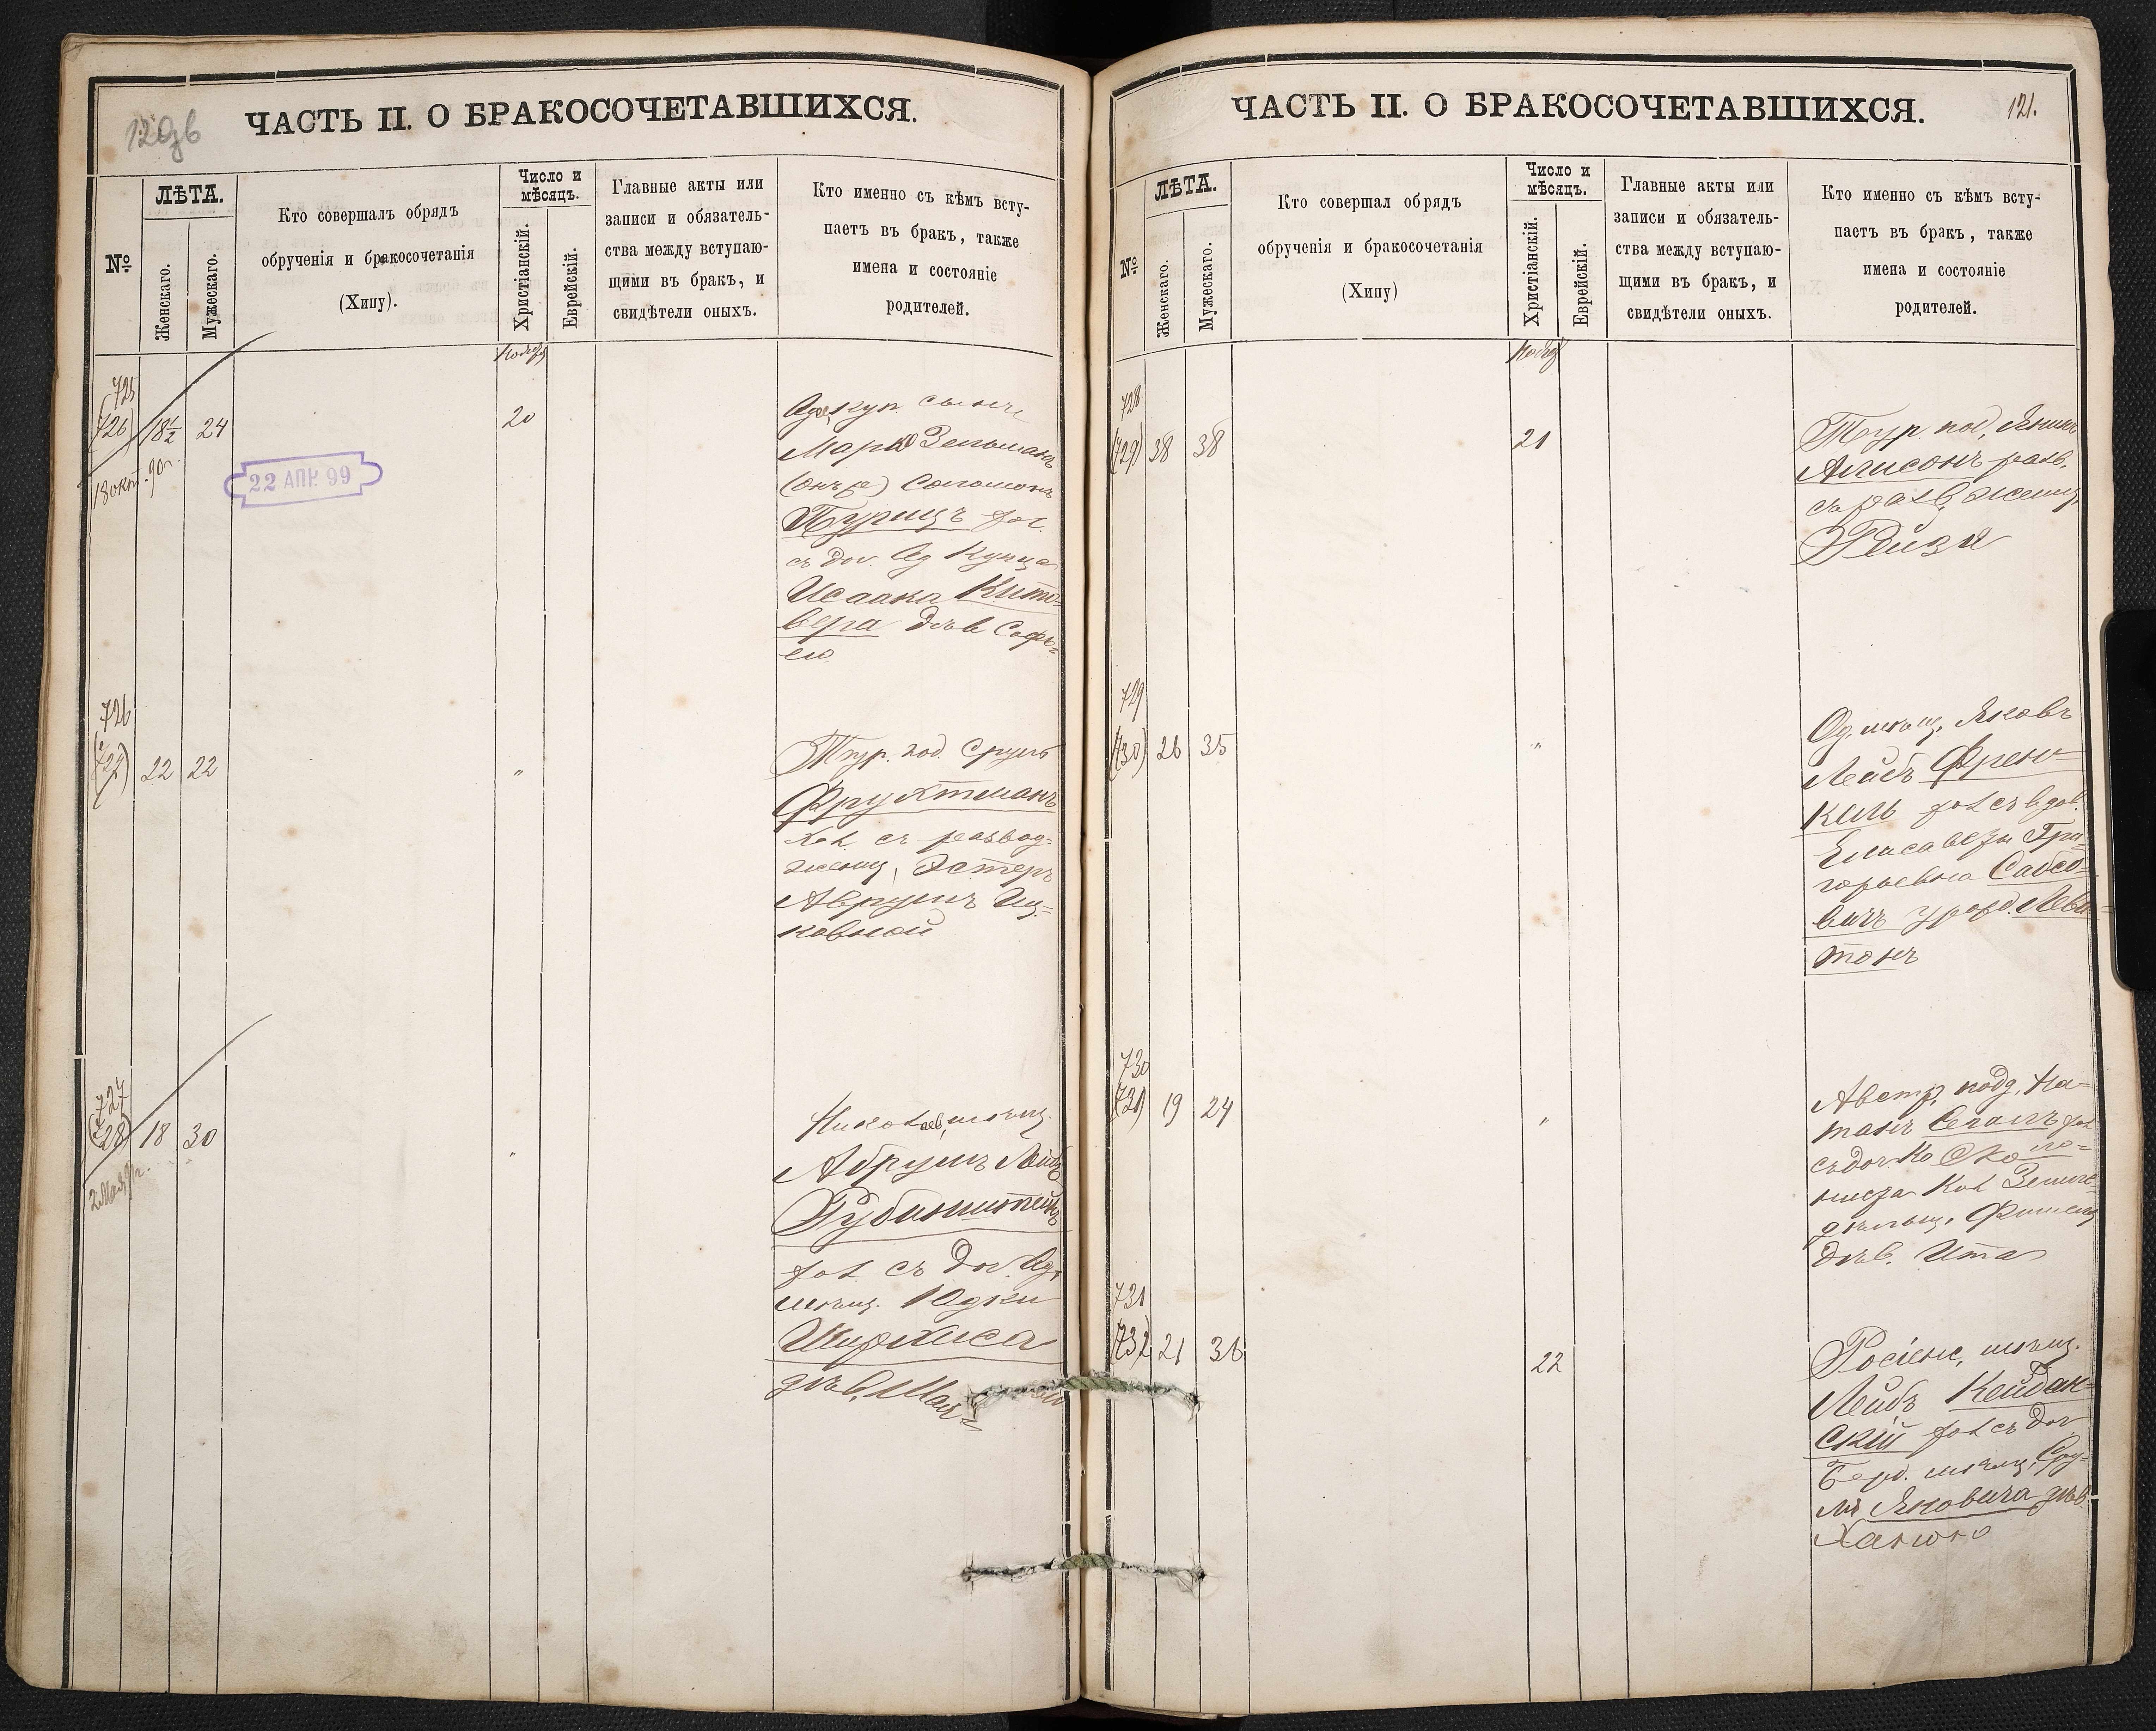 120 об
ЧАСТЬ II. О БРАКОСОЧЕТАВШИХСЯ.
№
ЛѢТА.
Женскаго.
Мужескаго.
Кто совершалъ обрядъ
обрученія и бракосочетанія
(Хипу).
Число и
мѣсяцъ.
Христіанскій.
Еврейскій.
Главные акты или
записи и обязатель-
ства между вступаю-
щими въ бракъ, и
свидѣтели оныхъ.
Кто именно съ кѣмъ всту-
паетъ въ бракъ, также
имена и состояніе
родителей.
Ноября
725
(726) 18½ 24
20
18 окт. 90 г.
22 АПР. 99
Од. куп. сынъ
Марко Зельманъ
(онъ же) Соломонъ
Турицъ хол.
съ доч. Од Купца
Исаака Кито-
вера дѣв Софь-
ею
726
(727) 22 22
"
Тур. под. Сруль
Фруктманъ
хол. съ развод-
женщ, Эстеръ
Аврумъ Иц-
ковной
727
(728) 18 30
"
Николаев, мѣщ.
Абрумъ Лейбъ
Рубинштейнъ
хол. съ доч. Од,
мѣщ. Юдки
Ширмиса
дѣв,
121.
ЧАСТЬ II. О БРАКОСОЧЕТАВШИХСЯ.
№
ЛѢТА.
Женскаго.
Мужескаго.
Кто совершал обрядъ
обрученія и бракосочетанія
(Хипу)
Число и
мѣсяцъ.
Христіанскій.
Еврейскій.
Главные акты или
записи и обязатель-
ства между вступаю-
щими въ бракъ, и
свидѣтели оныхъ.
Кто именно съ кѣмъ всту-
паетъ въ бракъ, также
имена и состояніе
родителей.
Ноября
728
(729) 38 38
21
Тур. под,
разв.
съ разв, женщ,
Рейзя
729
(730) 26 35
"
Од. мѣщ, Яковъ
Лейбъ Френ-
кель хол съ вдов.
Елисаветы Гри-
горьевна
вичъ урожд. Леви-
тонъ
730
(731) 19 24
"
Австр, подд, На-
танъ Сегалъ хол
съ доч.
Кол Земле-
дѣльц,
дѣв. Ита
731
(732) 21 36
22
Росіенс, мѣщ.
Лейбъ Кейдан-
скій хол съ доч
Берд. мѣщ, Сру-
ля Яновича дѣв.
Ханою